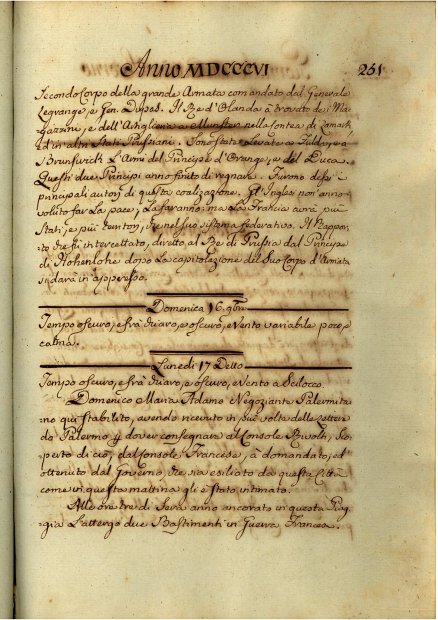 Anno MDCCCVI 251
Secondo Corpo della grande Armata comandato dal Generale
Legrange, e Gen. Dupas. Il Re d'Olanda à trovato dei Ma-
gazzini, e dell'Artiglieria a Munster nella Contea di La Mark
ed in altri Stati Prussiani. Sono state levate a Fulda, ed a
Brunswich L'Armi del Principe d'Orange, e del Duca.
Questi due Principi anno finito di regnare. Furono essi i
principali autori di questa coalizione. Gl'Inglesi non anno
voluto far La pace; La faranno: ma La Francia avrà più
Stati, e più territorj, nel suo sistema federativo. Il Rappor-
to intercettato, diretto al Re di Prussia dal Principe
di Hohenlohe dopo La capitolazione del Suo Corpo d'Armata
si darà in appresso.
Domenica 16. 9bre
Tempo oscuro, e frà chiaro, e oscuro, e Vento variabile poco, e
calma.
Lunedi 17 Detto
Tempo oscuro, e frà chiaro, e oscuro, e Vento a Scilocco.
Domenico Maria Adamo Negoziante Palermita-
no qui stabilito, avendo ricevuto in più volte delle Lettere
da Palermo p dover consegnare al Console Rivoli, Sco-
perto di ciò, dal Console Francese, à domandato, ed
ottenuto dal Governo, che sia esiliato da questa Città
come in questa mattina gli è stato intimato.
Alle ore tre di Sera anno ancorato in questa Piag-
gia L'attergo due Bastimenti in Guerra Francesi.